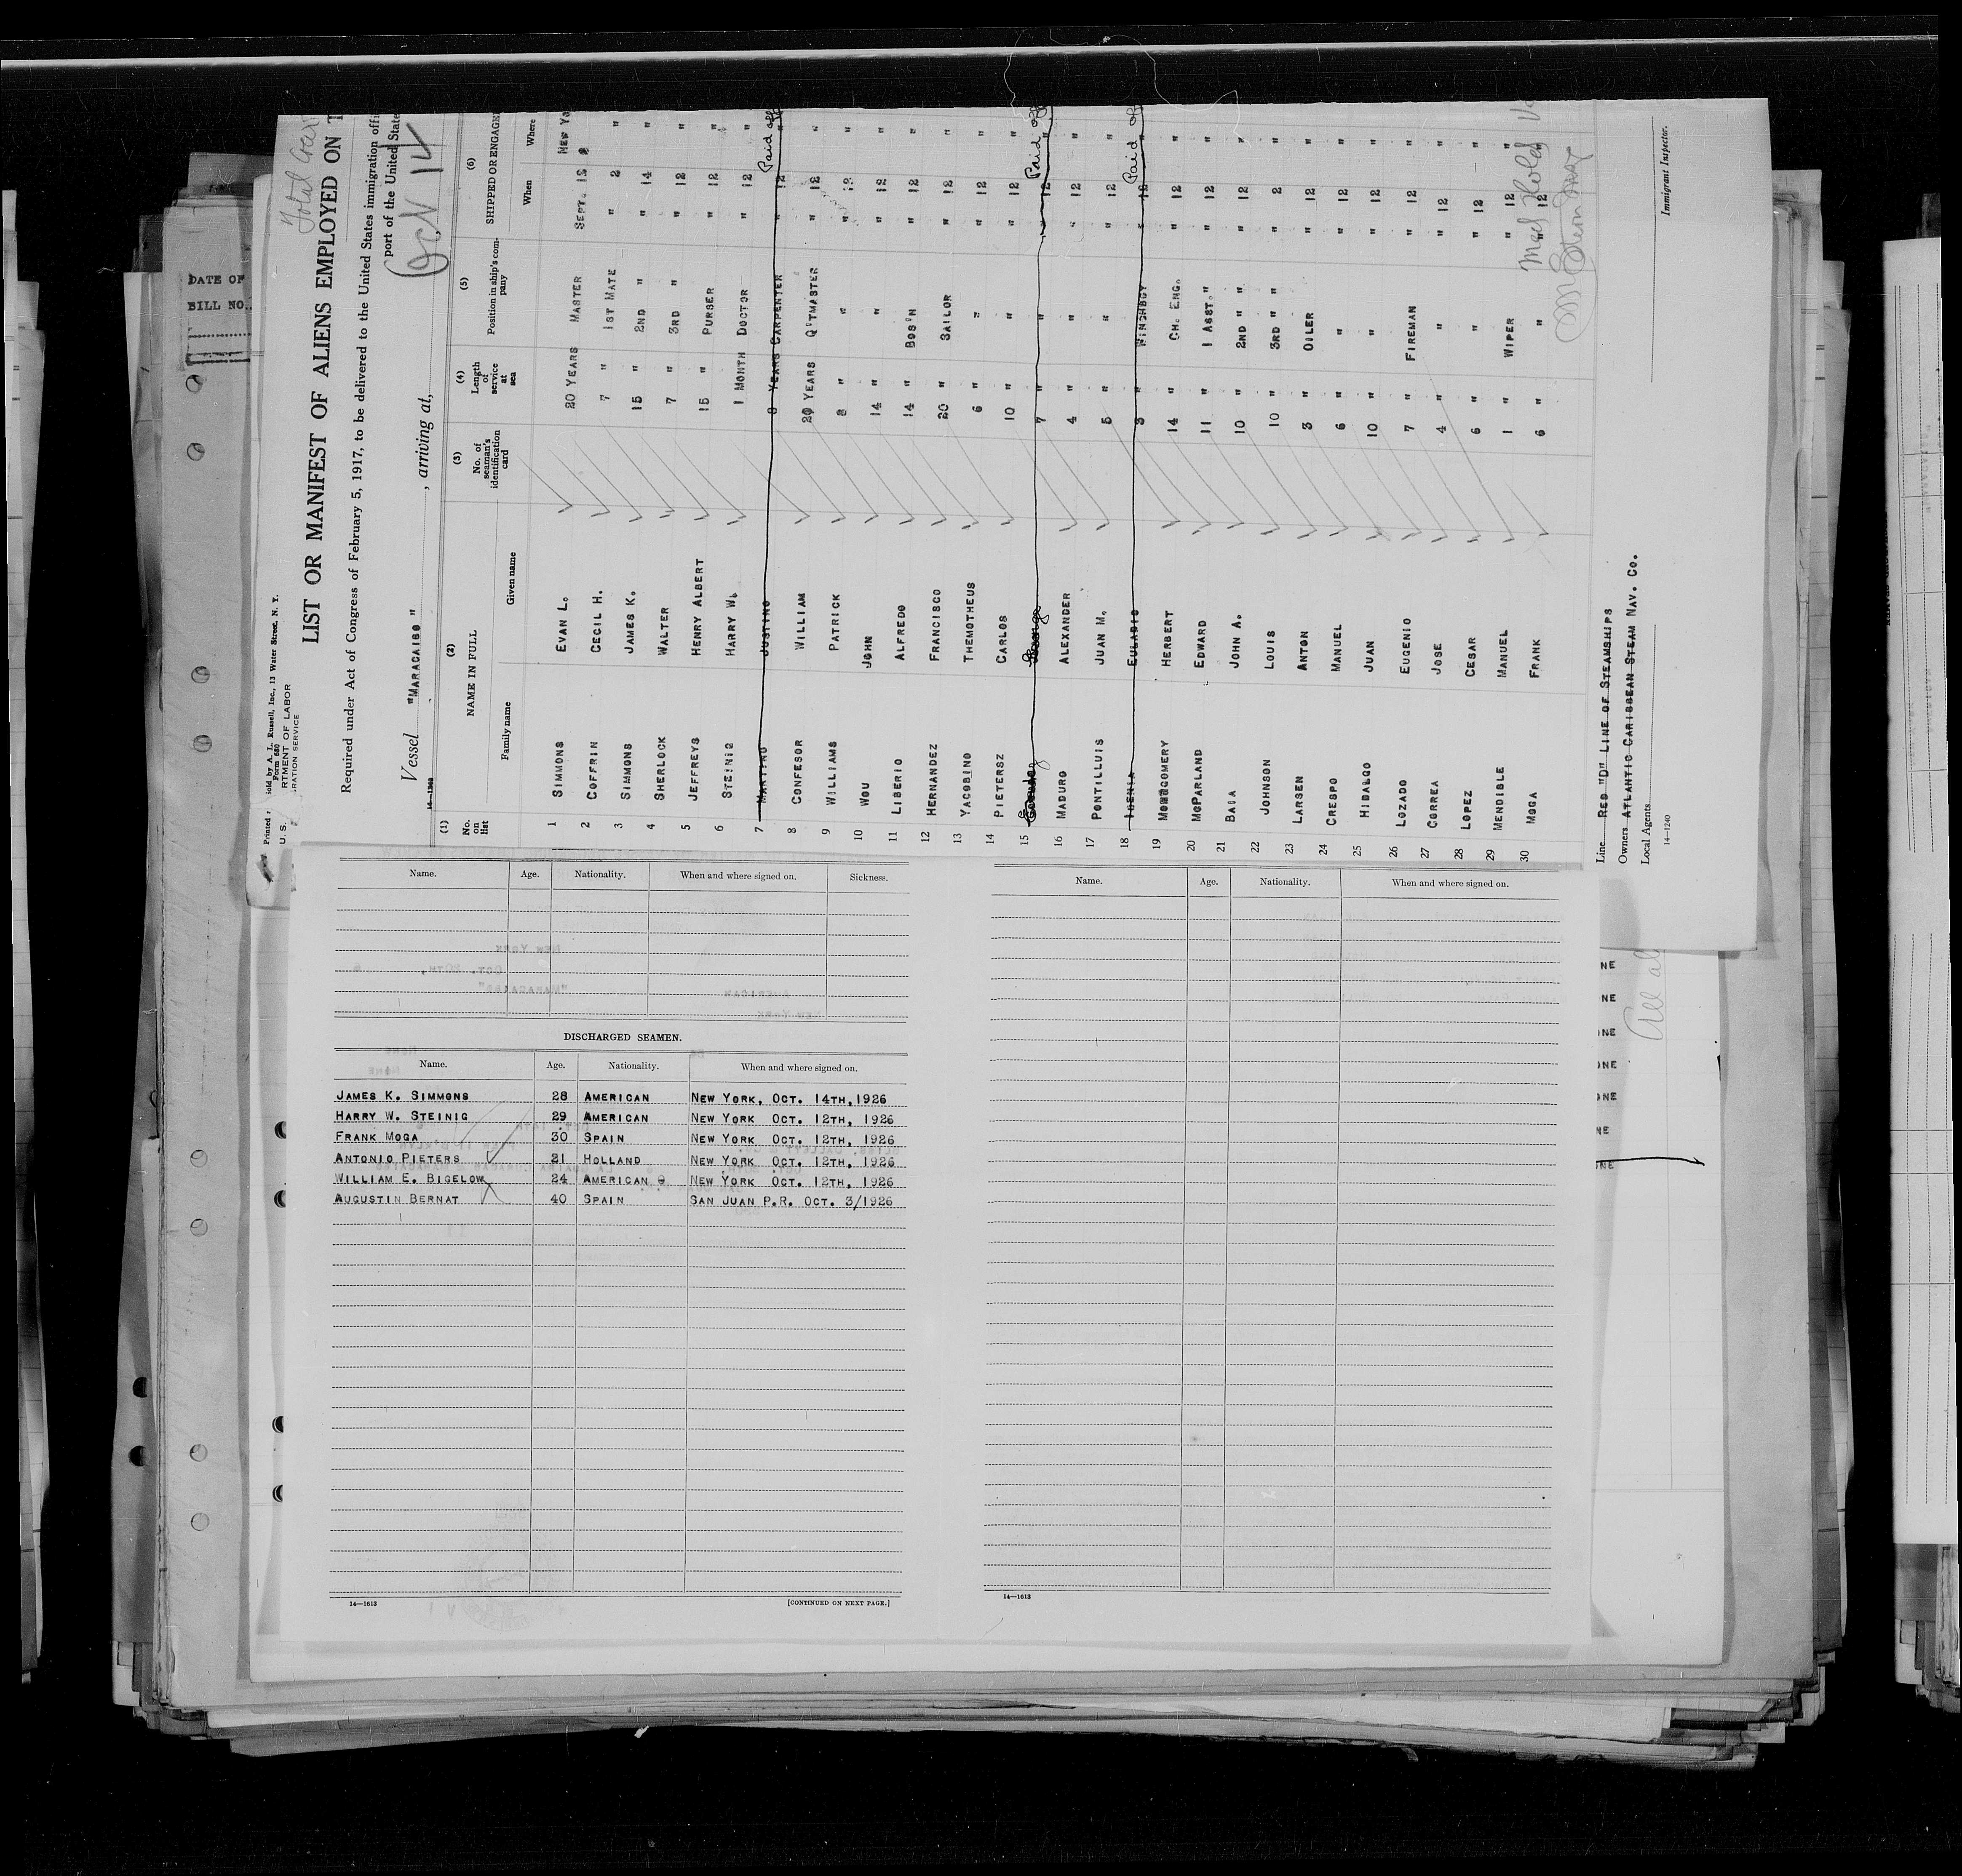 DATE OF
BILL NO.
Printed
sold by A. L. Russell, Inc., 13 Water Street, N. Y.
Form 680
U. S.
RTMENT OF LABOR
RATION SERVICE
Total
LIST OR MANIFEST OF ALIENS EMPLOYED ON T
Required under Act of Congress of February 5, 1917, to be delivered to the United States immigration offi
port of the United State
Vessel "MARACAIBO" , arriving at,
14—1240
(1) (2) (3) (4) (5) (6)
No. on list NAME IN FULL No. of seaman's identification card Length of service at sea Position in ship's company SHIPPED OR ENGAGE
Family name Given name When Where
1 SIMMONS EVAN L. 20 YEARS MASTER SEPT. 18 NEW YO
2 COFFRIN CECIL H. 7 " 1ST MATE " 2 "
3 SIMMONS JAMES K. 15 " 2ND " " 14 "
4 SHERLOCK WALTER 7 " 3RD " " 12 "
5 JEFFREYS HENRY ALBERT 15 " PURSER " 12 "
6 STEINIG HARRY W. 1 MONTH DOCTOR " 12 "
7 MARTINO JUSTINO 8 YEARS CARPENTER " 12 Paid off
8 CONFESOR WILLIAM 20 YEARS Q'TMASTER " 12 "
9 WILLIAMS PATRICK 8 " " " 12 "
10 WOU JOHN 14 " " " 12 "
11 LIBERIO ALFREDO 14 " BOS'N " 12 "
12 HERNANDEZ FRANCISCO 20 " SAILOR " 12 "
13 YACOBINO THEMOTHEUS 6 " " " 12 "
14 PIETERSZ CARLOS 10 " " " 12 "
15 7 " " " 12 Paid off
16 MADURO ALEXANDER 4 " " " 12 "
17 PONTILLUIS JUAN M. 5 " " " 12 "
18 EULADIO 3 " WINCHBOY " 12 Paid off
19 MONTGOMERY HERBERT 14 " CH. ENG. " 12 "
20 MCPARLAND EDWARD 11 " 1 ASST. " " 12 "
21 BAIA JOHN A. 10 " 2ND " " " 12 "
22 JOHNSON LOUIS 10 " 3RD " " " 2 "
23 LARSEN ANTON 3 " OILER " 12 "
24 CRESPO MANUEL 6 " " " 12 "
25 HIDALGO JUAN 10 " " " 12 "
26 LOZADO EUGENIO 7 " FIREMAN " 12 "
27 CORREA JOSE 4 " " " 12 "
28 LOPEZ CESAR 6 " " " 12 "
29 MENDIBLE MANUEL 1 " WIPER " 12 "
30 MOGA FRANK 6 " " " 12 "
Line RED "D" LINE OF STEAMSHIPS
Owners ATLANTIC CARIBBEAN STEAM NAV. CO.
Local Agents
14—1240
Immigrant Inspector.
Name. Age. Nationality. When and where signed on. Sickness.
DISCHARGED SEAMEN.
Name. Age. Nationality. When and where signed on.
JAMES K. SIMMONS 28 AMERICAN NEW YORK, OCT. 14TH, 1926
HARRY W. STEINIG 29 AMERICAN NEW YORK OCT. 12TH, 1926
FRANK MOGA 30 SPAIN NEW YORK OCT. 12TH, 1926
ANTONIO PIETERS 21 HOLLAND NEW YORK OCT. 12TH, 1926
WILLIAM E. BIGELOW 24 AMERICAN NEW YORK OCT. 12TH, 1926
AUGUSTIN BERNAT 40 SPAIN SAN JUAN P.R. OCT. 3/1926
14—1613
[CONTINUED ON NEXT PAGE.]
Name. Age. Nationality. When and where signed on.
14—1613
NE
NE
NE
ONE
ONE
NE
ONE
All